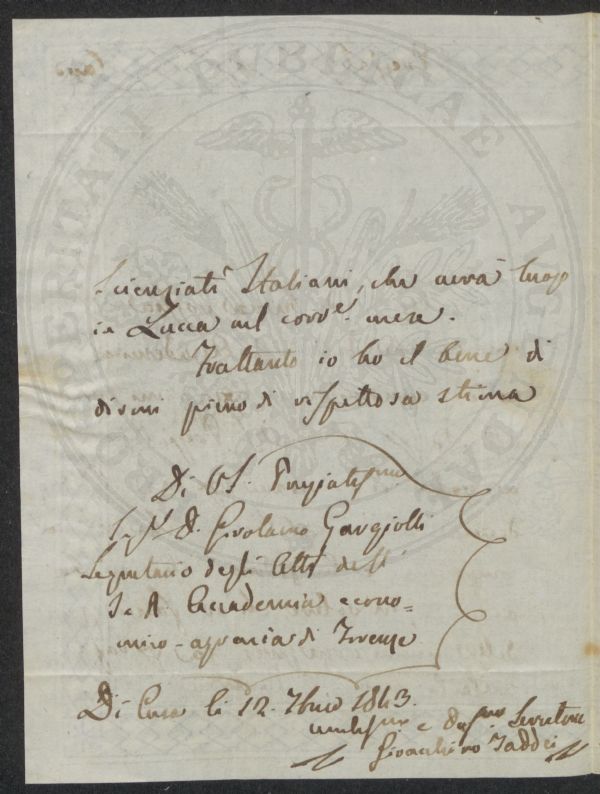 PROSPERITATI PUBLICAE AUGENDAE
Scienziati Italiani, che avrà luogo
in Lucca nel corr.e mese.
Frattanto io ho il bene di
dirmi pieno di rispettosa stima
Di VS. Pregiatissma
Sig.r D. Girolamo Gargiolli
Segretario degli Atti dell'
I. e R. Accademia econo-
mico-agraria di Firenze
Di Casa li 12. 7bre 1843.
e Servitore
Gioacchino Taddei